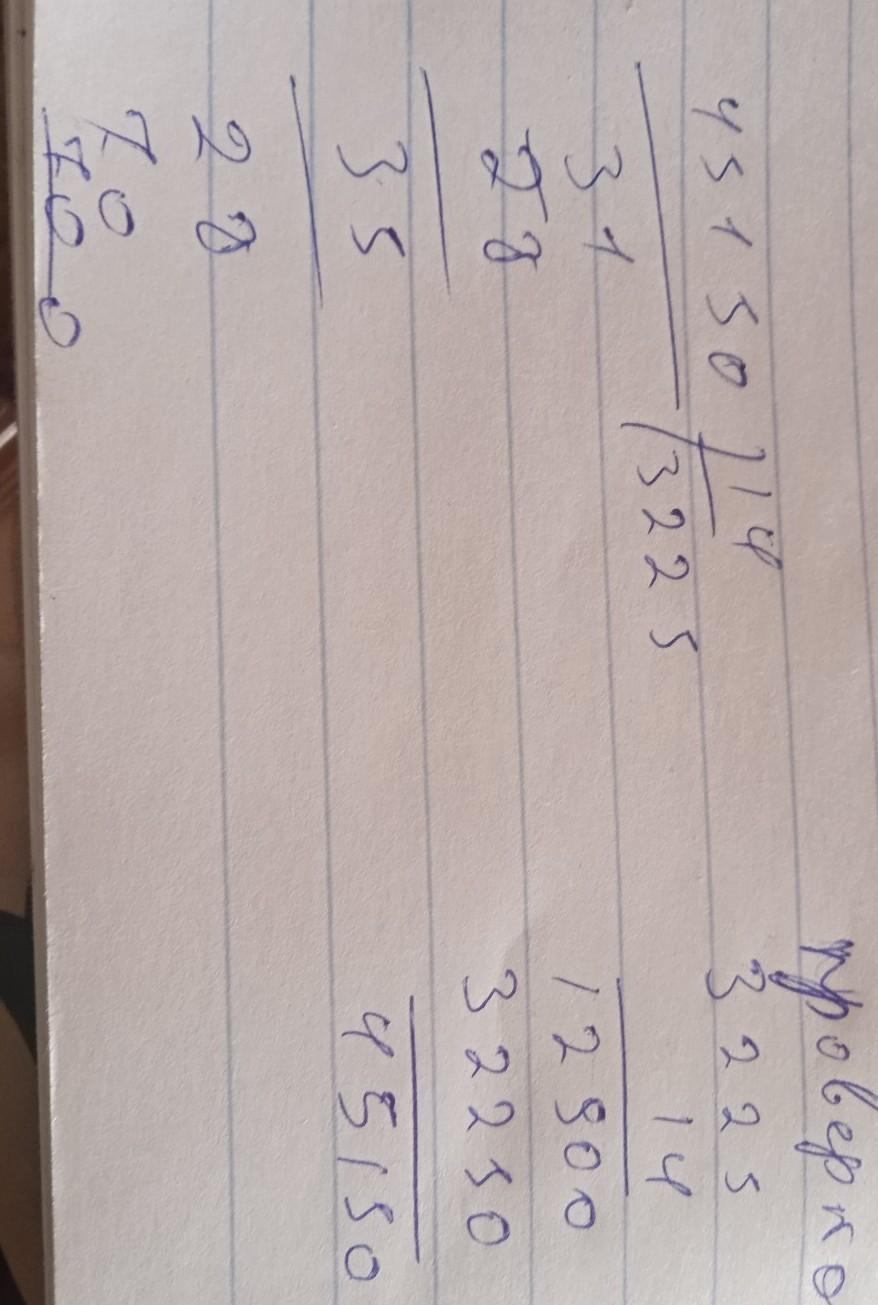 45150 14
3225
31
28
35
28
70
70
0
проверка
3225
14
12900
32250
45150